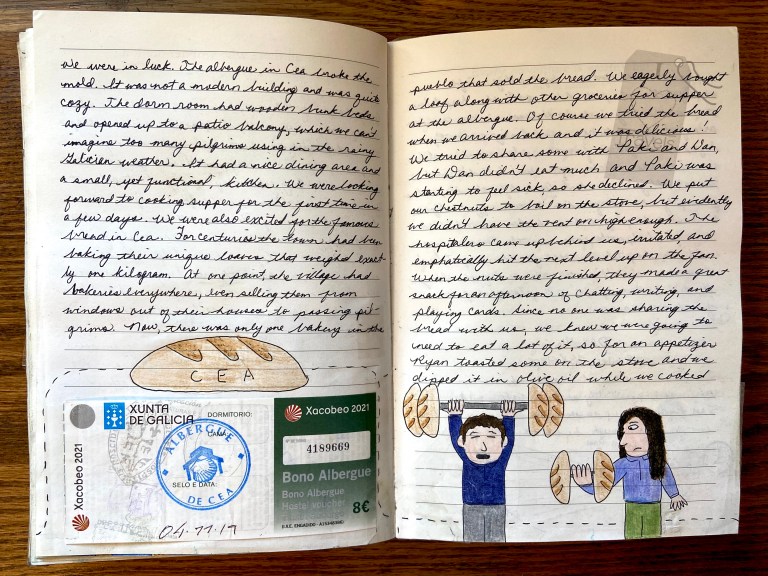 We were in luck. The albergue in Cea broke the
mold. It was not a modern building and was quite
cozy. The dorm room had wooden bunk beds
and opened up to a patio balcony, which we can't
imagine too many pilgrims using in the rainy
Galician weather. It had a nice dining area and
a small, yet functional, kitchen. We were looking
forward to cooking supper for the first time in
a few days. We were also excited for the famous
bread in Cea. For centuries the town had been
baking their unique loaves that weighed exact-
ly one kilogram. At one point, the village had
bakeries everywhere, even selling them from
windows out of their houses to passing pil-
grims. Now, there was only one bakery in the
CEA
XUNTA
DE GALICIA
DORMITORIO:
Xacobeo 2021
Xacobeo 2021
ALBERGUE
DE CEA
SELO E DATA:
04.11.19
4189669
Bono Albergue
Bono Albergue
Hostel voucher
8€
pueblo that sold the bread. We eagerly bought
a loaf along with other groceries for supper
at the albergue. Of course we tried the bread
when we arrived back and it was delicious!
We tried to share some with Paki and Dan,
but Dan didn't eat much and Paki was
starting to feel sick, so she declined. We put
our chestnuts to boil on the stove, but evidently
we didn't have the vent on high enough. The
hospitalero came up behind us, irritated, and
emphatically hit the next level up on the fan.
When the nuts were finished, they made a great
snack for an afternoon of chatting, writing, and
playing cards. Since no one was sharing the
bread with us, we knew we were going to
need to eat a lot of it, so for an appetizer
Ryan toasted some on the stove and we
dipped it in olive oil while we cooked